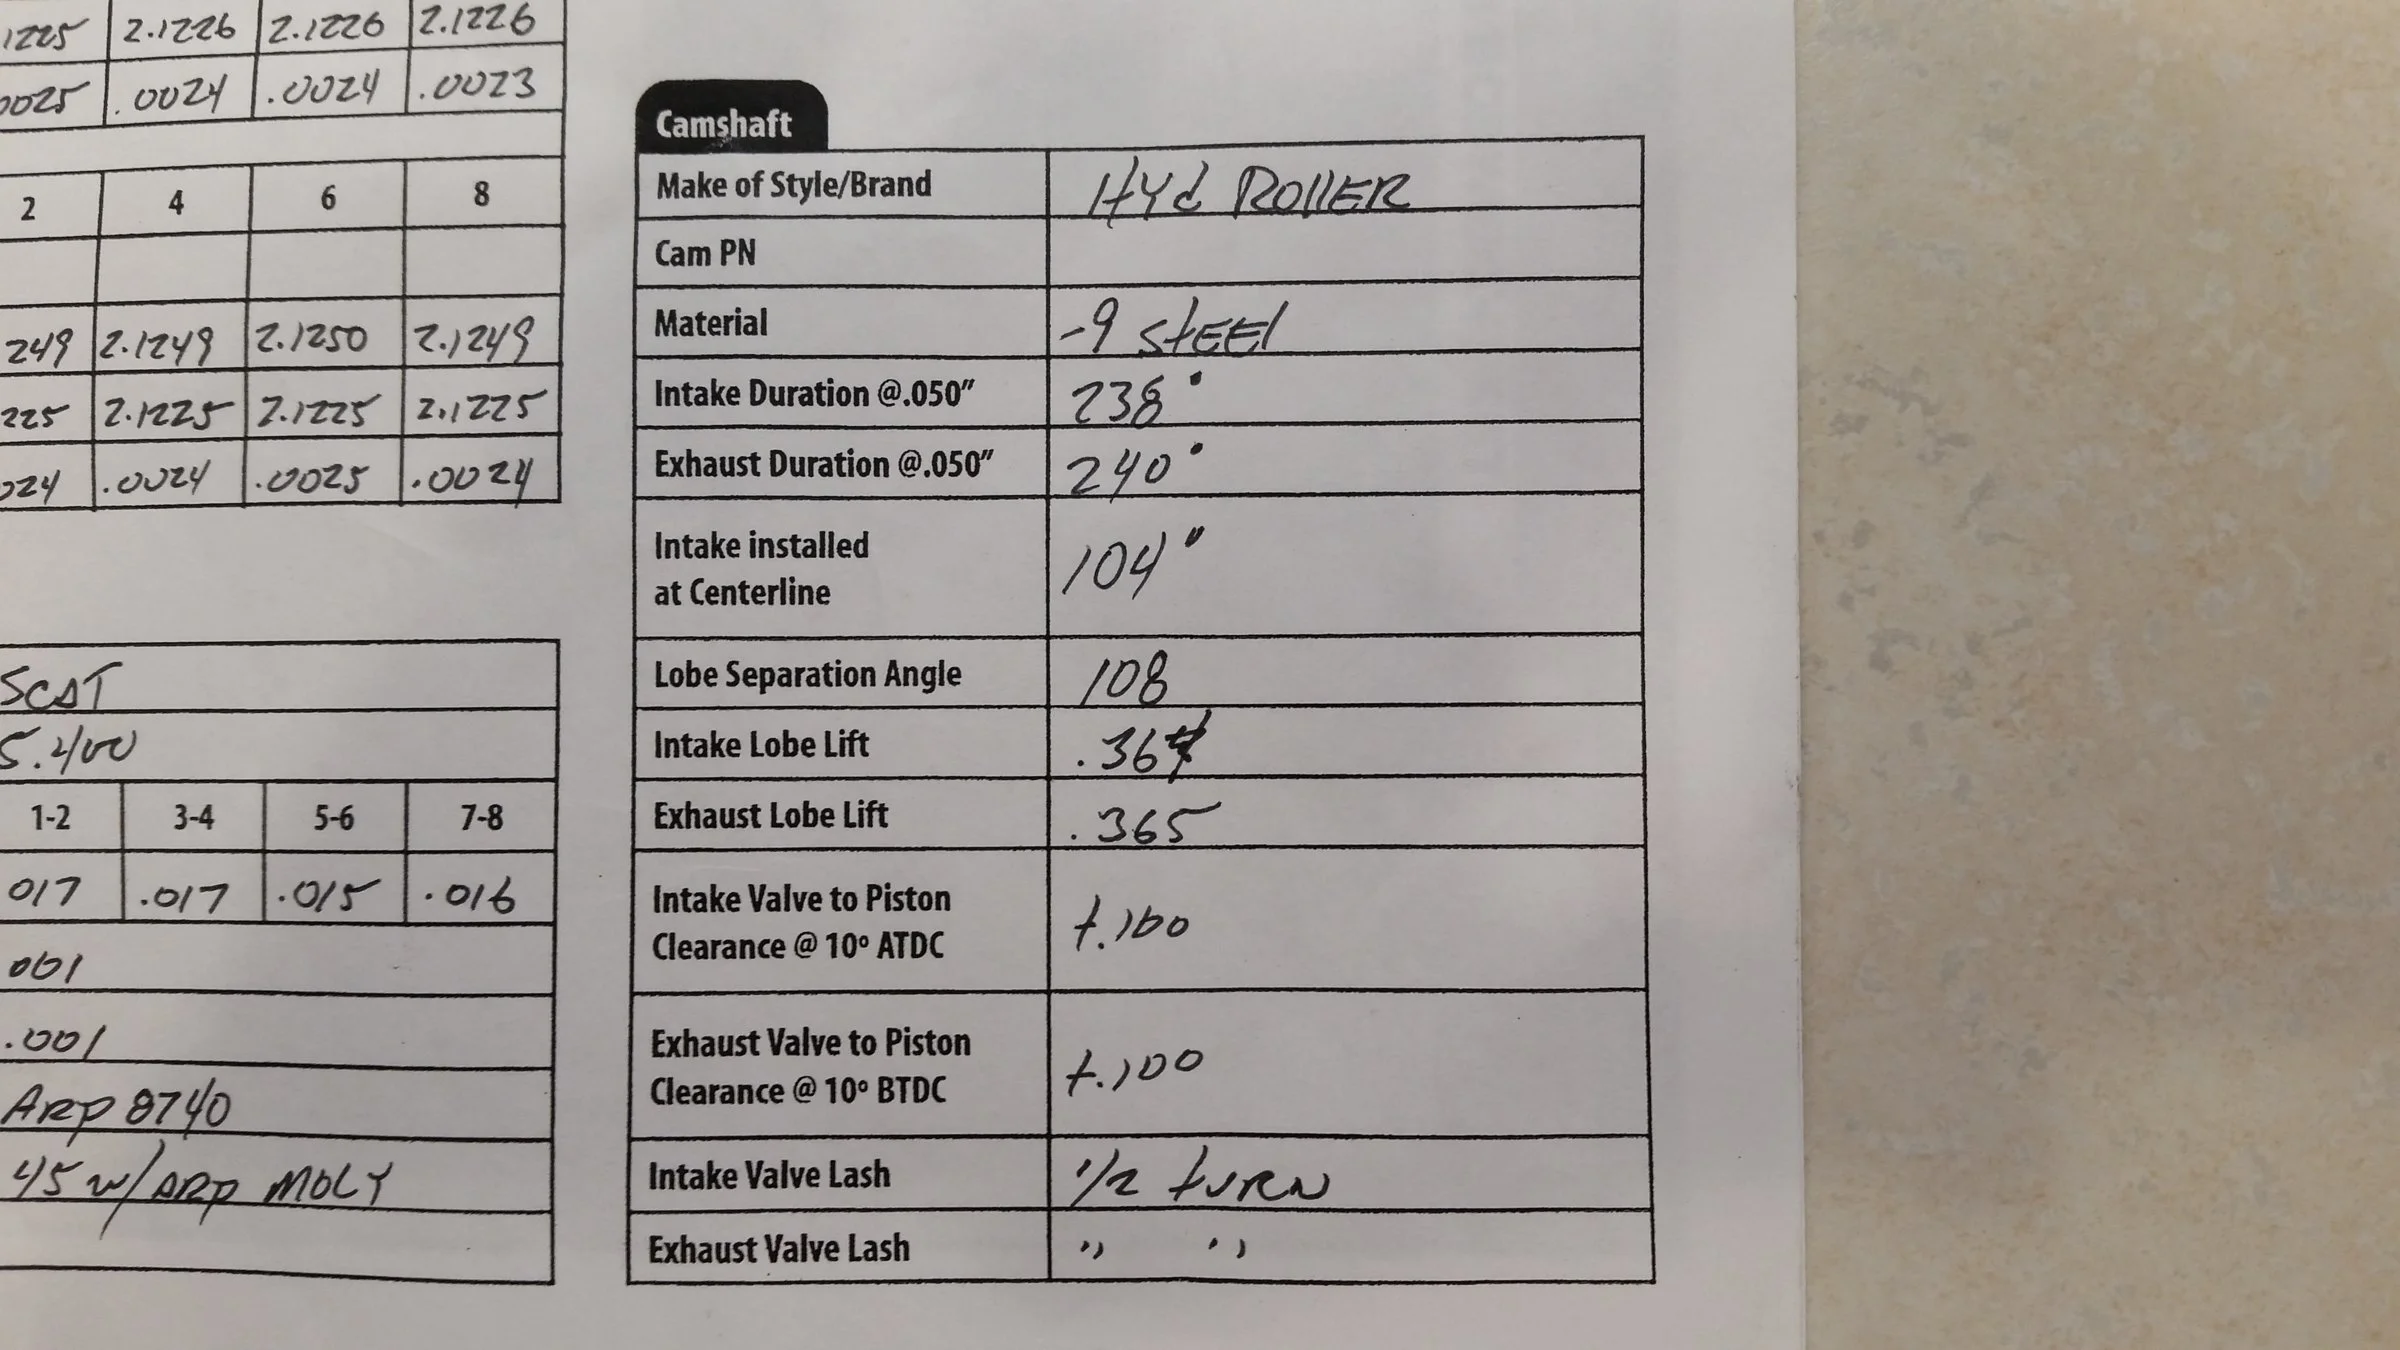 1225 2.1226 2.1226 2.1226
0025 .0024 .0024 .0023
2 4 6 8
249 2.1249 2.1250 2.1249
225 2.1225 2.1225 2.1225
024 .0024 .0025 .0024
SCAT
5.400
1-2 3-4 5-6 7-8
017 .017 .015 .016
001
.001
ARP 8740
45 w/ARP MOLY
Camshaft
Make of Style/Brand HYd ROllER
Cam PN
Material -9 stEEl
Intake Duration @.050” 238°
Exhaust Duration @.050” 240°
Intake installed
at Centerline 104"
Lobe Separation Angle 108
Intake Lobe Lift
Exhaust Lobe Lift .365
Intake Valve to Piston
Clearance @ 10º ATDC +.100
Exhaust Valve to Piston
Clearance @ 10º BTDC +.100
Intake Valve Lash 1/2 tURN
Exhaust Valve Lash " "